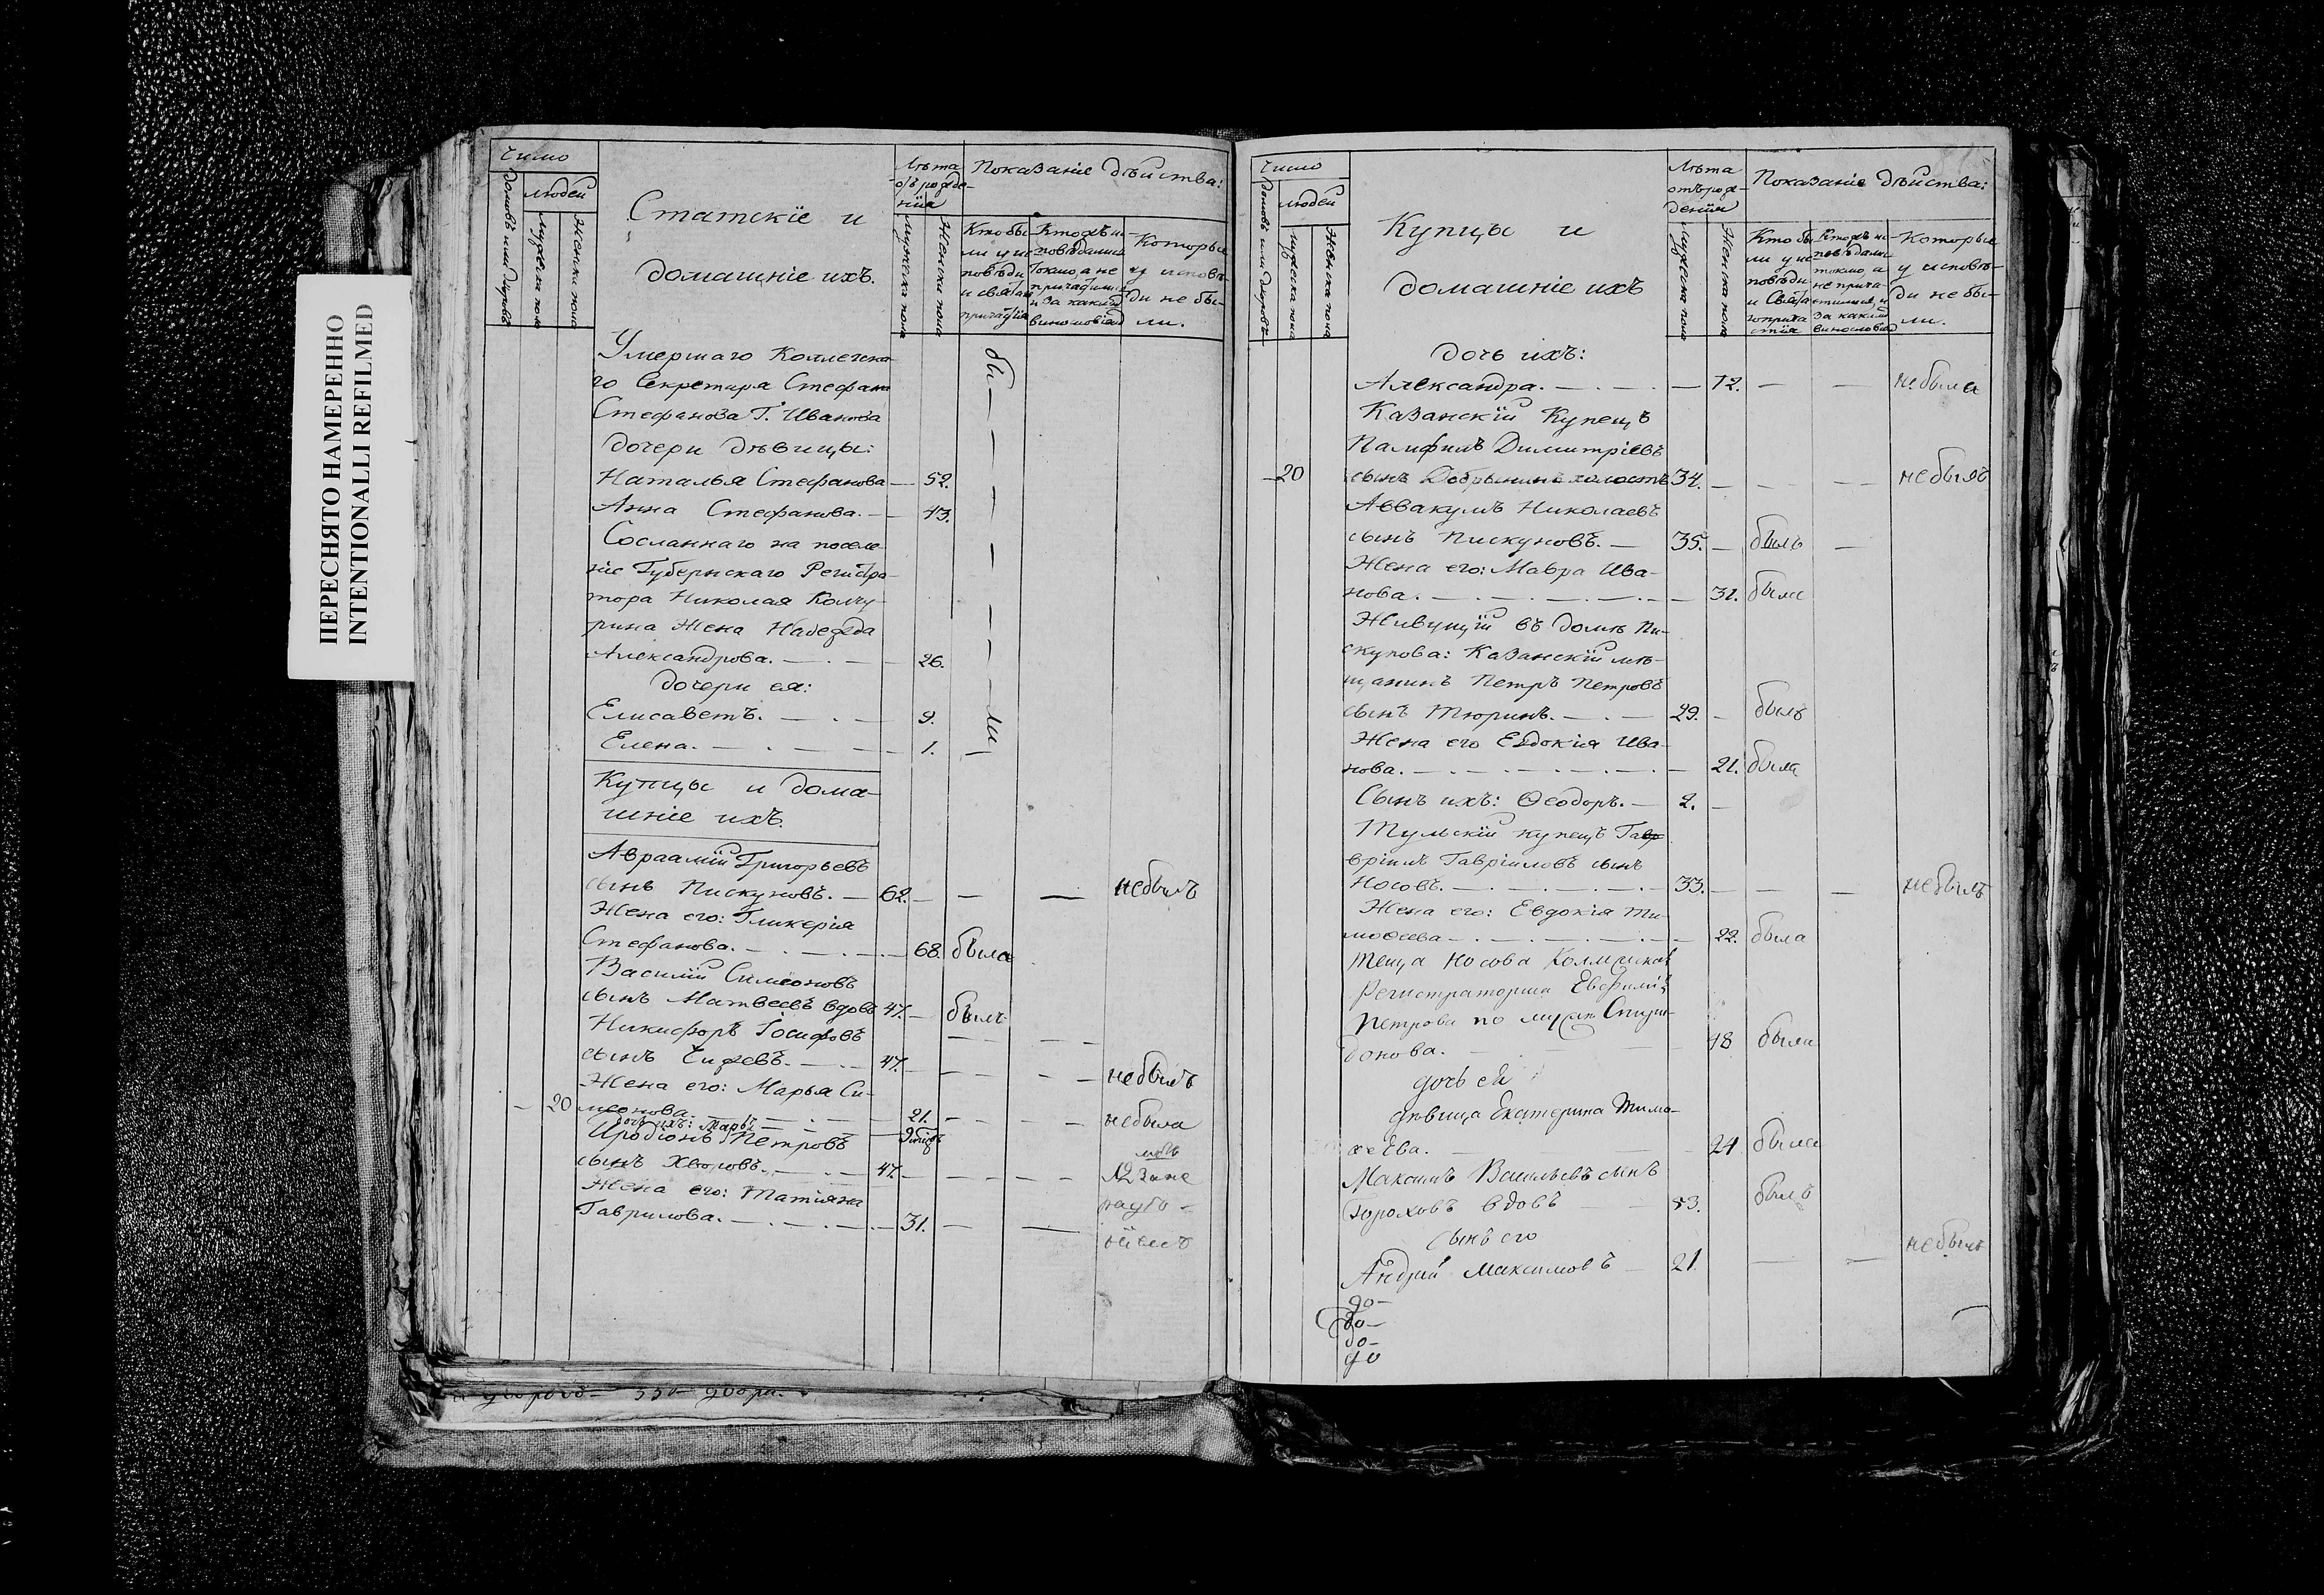 ПЕРЕСНЯТО НАМЕРЕННО
INTENTIONALLI REFILMED
Число
Домовъ или дворовъ
людей
Мужеска пола
Женска пола
Статскіе и
домашніе ихъ.
Лѣта
отъ рожде-
нія
Мужеска пола
Женска пола
Показаніе дѣйства:
Кто бы-
ли у ис
повѣди
и святаго
причастія
Кто жъ ис
повѣдались
токмо, а не
причастил
и за какимъ
винословіемъ
Которые
у исповѣ-
ди не бы-
ли.
Умершаго Коллежска-
го Секретаря Стефана
Стефанова Г. Иванова
дочери дѣвицы:
Наталья Стефанова — 52.
Анна Стефанова. — 43.
Сосланнаго на поселе-
ніе Губернскаго Регистра-
тора Николая
жена Надежда
Александрова. — 26.
дочери ея:
Елисаветъ. — 9.
Елена. — 1.
бы — ли
Купцы и дома-
шніе ихъ.
Авраамій Григорьевъ
сынъ Пискуновъ. — 62. — — — небылъ
Жена его: Гликерія
Стефанова. — 68. была
Василій Симеоновъ
сынъ Матвеевъ вдовъ 47. — былъ
Никифоръ Іосифовъ
сынъ Чижевъ. — 47. — небылъ
Жена его: Марья Си-
20 меонова. — 21. — небыла
дочь ихъ: Марья
Иродіонъ Петровъ
сынъ — 47. —
Жена его: Татіяна
Гаврилова. — 31. —
Число
Домовъ или дворовъ
людей
мужеска пола
Женска пола
Купцы и
домашніе ихъ
Лѣта
отъ рож-
денія
мужеска пола
Женска пола
Показаніе дѣйства:
Кто бы
ли у ис
повѣди
и Свята
го прича
стія
Кто жъ ис
повѣдали
токмо, а
не прича-
стились, и
за какимъ
винословіемъ
Которые
у исповѣ-
ди не бы-
ли.
дочь ихъ:
Александра. — 12. — — небыла
Казанскій Купецъ
Памфилъ Димитріевъ
20 сынъ Добрынинъ холостъ 34. — — — небылъ
Аввакумъ Николаевъ
сынъ Пискуновъ. — 35. — былъ —
Жена его: Мавра Ива-
нова. — 31. была
Живущій въ домѣ Пи-
скунова: Казанскій мѣ-
щанинъ Петръ Петровъ
сынъ Тюринъ. — 29. — былъ
Жена его Евдокія Ива-
нова. — 21. была
Сынъ ихъ: Ѳеодоръ. — 2. —
Тульскій купецъ Гав
вріилъ Гавріиловъ сынъ
Носовъ. — 33. — — — небылъ
Жена его: Евдокія Ти-
моѳеева — 22. была
теща Носова Коллежская
Регистраторша Евфимія
Петрова по мужѣ Спири-
донова. — 48 была
дочь ея
дѣвица Екатерина Тимо-
ѳеева. — 24 была
Максимъ Васильевъ сынъ
вдовъ — 53. былъ
сынъ его
Андрей Максимовъ — 21. — — небылъ
до-
до-
до-
до